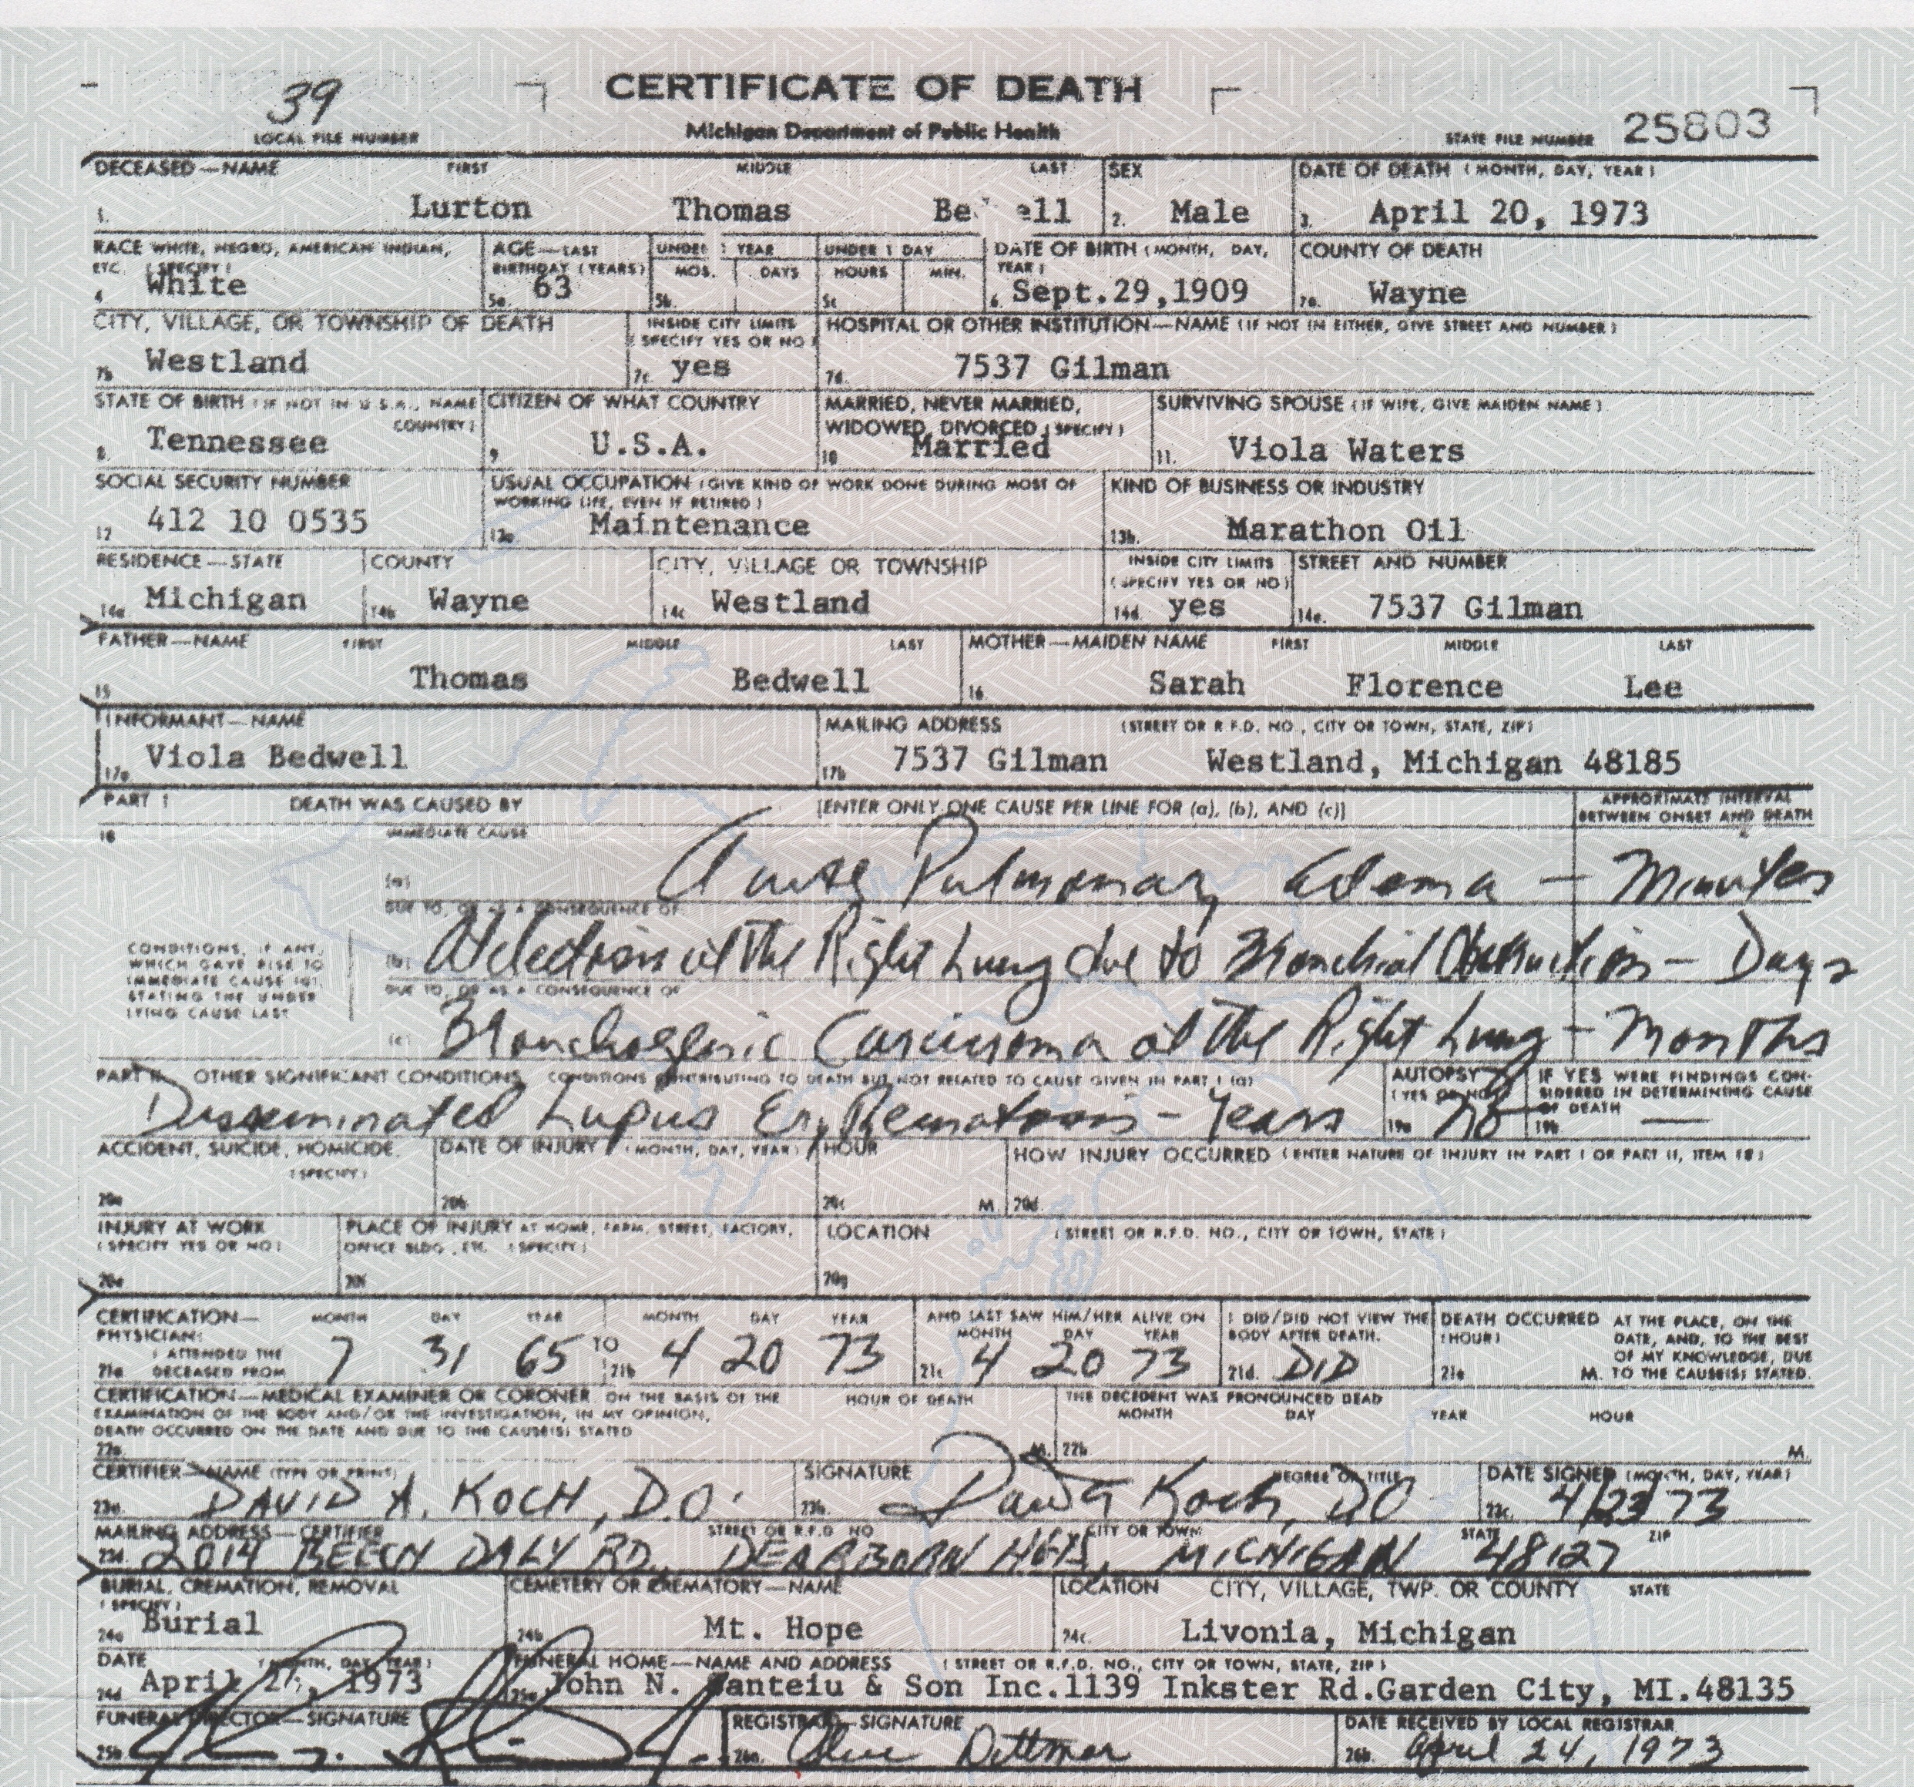 39 CERTIFICATE OF DEATH
LOCAL FILE NUMBER Michigan Department of Public Health STATE FILE NUMBER 25803
DECEASED—NAME FIRST MIDDLE LAST SEX DATE OF DEATH (MONTH, DAY, YEAR)
1. Lurton Thomas 2. Male 3. April 20, 1973
RACE WHITE, NEGRO, AMERICAN INDIAN, AGE—LAST UNDER 1 YEAR UNDER 1 DAY DATE OF BIRTH (MONTH, DAY, COUNTY OF DEATH
ETC. (SPECIFY) BIRTHDAY (YEARS) MOS. DAYS HOURS MIN. YEAR)
4 White 5a. 63 5b. 5c 6. Sept.29,1909 7a. Wayne
CITY, VILLAGE, OR TOWNSHIP OF DEATH INSIDE CITY LIMITS HOSPITAL OR OTHER INSTITUTION—NAME (IF NOT IN EITHER, GIVE STREET AND NUMBER)
(SPECIFY YES OR NO)
7b Westland 7c yes 7d. 7537 Gilman
STATE OF BIRTH (IF NOT IN U.S.A., NAME CITIZEN OF WHAT COUNTRY MARRIED, NEVER MARRIED, SURVIVING SPOUSE (IF WIFE, GIVE MAIDEN NAME)
COUNTRY) WIDOWED, DIVORCED (SPECIFY)
8. Tennessee 9. U.S.A. 10 Married 11. Viola Waters
SOCIAL SECURITY NUMBER USUAL OCCUPATION (GIVE KIND OF WORK DONE DURING MOST OF KIND OF BUSINESS OR INDUSTRY
WORKING LIFE, EVEN IF RETIRED)
12 412 10 0535 13a. Maintenance 13b. Marathon Oil
RESIDENCE—STATE COUNTY CITY, VILLAGE OR TOWNSHIP INSIDE CITY LIMITS STREET AND NUMBER
(SPECIFY YES OR NO)
14a Michigan 14b Wayne 14c Westland 14d yes 14e. 7537 Gilman
FATHER—NAME FIRST MIDDLE LAST MOTHER—MAIDEN NAME FIRST MIDDLE LAST
15 Thomas Bedwell 16. Sarah Florence Lee
INFORMANT—NAME MAILING ADDRESS (STREET OR R.F.D. NO., CITY OR TOWN, STATE, ZIP)
17a Viola Bedwell 17b 7537 Gilman Westland, Michigan 48185
PART I DEATH WAS CAUSED BY [ENTER ONLY ONE CAUSE PER LINE FOR (a), (b), AND (c)] APPROXIMATE INTERVAL
18 IMMEDIATE CAUSE BETWEEN ONSET AND DEATH
(a) Acute Pulmonary Edema — Minutes
DUE TO, OR AS A CONSEQUENCE OF:
CONDITIONS, IF ANY,
WHICH GAVE RISE TO
IMMEDIATE CAUSE (a),
STATING THE UNDER
LYING CAUSE LAST
(b) of the Right Lung due to Bronchial Obstruction — Days
DUE TO, OR AS A CONSEQUENCE OF
(c) Bronchogenic Carcinoma of the Right Lung — Months
PART II OTHER SIGNIFICANT CONDITIONS CONDITIONS CONTRIBUTING TO DEATH BUT NOT RELATED TO CAUSE GIVEN IN PART I (a) AUTOPSY IF YES WERE FINDINGS CON-
(YES OR NO) SIDERED IN DETERMINING CAUSE
OF DEATH
Disseminated Lupus — Years 19a no 19b —
ACCIDENT, SUICIDE, HOMICIDE, DATE OF INJURY (MONTH, DAY, YEAR) HOUR HOW INJURY OCCURRED (ENTER NATURE OF INJURY IN PART I OR PART II, ITEM 18)
(SPECIFY)
20a 20b 20c M. 20d.
INJURY AT WORK PLACE OF INJURY AT HOME, FARM, STREET, FACTORY, LOCATION (STREET OR R.F.D. NO., CITY OR TOWN, STATE)
(SPECIFY YES OR NO) OFFICE BLDG., ETC. (SPECIFY)
20e 20f 20g
CERTIFICATION— MONTH DAY YEAR MONTH DAY YEAR AND LAST SAW HIM/HER ALIVE ON I DID/DID NOT VIEW THE DEATH OCCURRED AT THE PLACE, ON THE
PHYSICIAN: MONTH DAY YEAR BODY AFTER DEATH. (HOUR) DATE, AND, TO THE BEST
I ATTENDED THE OF MY KNOWLEDGE, DUE
21a DECEASED FROM 7 31 65 TO 21b 4 20 73 21c 4 20 73 21d. DID 21e M. TO THE CAUSE(S) STATED.
CERTIFICATION—MEDICAL EXAMINER OR CORONER ON THE BASIS OF THE HOUR OF DEATH THE DECEDENT WAS PRONOUNCED DEAD
EXAMINATION OF THE BODY AND/OR THE INVESTIGATION, IN MY OPINION, MONTH DAY YEAR HOUR
DEATH OCCURRED ON THE DATE AND DUE TO THE CAUSE(S) STATED
22a. M. 22b M.
CERTIFIER—NAME (TYPE OR PRINT) SIGNATURE DEGREE OR TITLE DATE SIGNED (MONTH, DAY, YEAR)
23a. DAVID A. KOCH, D.O. 23b. David A Koch, DO 23c. 4/23/73
MAILING ADDRESS—CERTIFIER STREET OR R.F.D. NO CITY OR TOWN STATE ZIP
23d. 2014 BEECH DALY RD. DEARBORN HGTS, MICHIGAN 48127
BURIAL, CREMATION, REMOVAL CEMETERY OR CREMATORY—NAME LOCATION CITY, VILLAGE, TWP. OR COUNTY STATE
(SPECIFY)
24a Burial 24b Mt. Hope 24c. Livonia, Michigan
DATE (MONTH, DAY, YEAR) FUNERAL HOME—NAME AND ADDRESS (STREET OR R.F.D. NO., CITY OR TOWN, STATE, ZIP)
24d April 1973 25a John N. Santeiu & Son Inc.1139 Inkster Rd.Garden City, MI.48135
FUNERAL DIRECTOR—SIGNATURE REGISTRAR—SIGNATURE DATE RECEIVED BY LOCAL REGISTRAR
25b 26a. Dittmar 26b. April 24, 1973